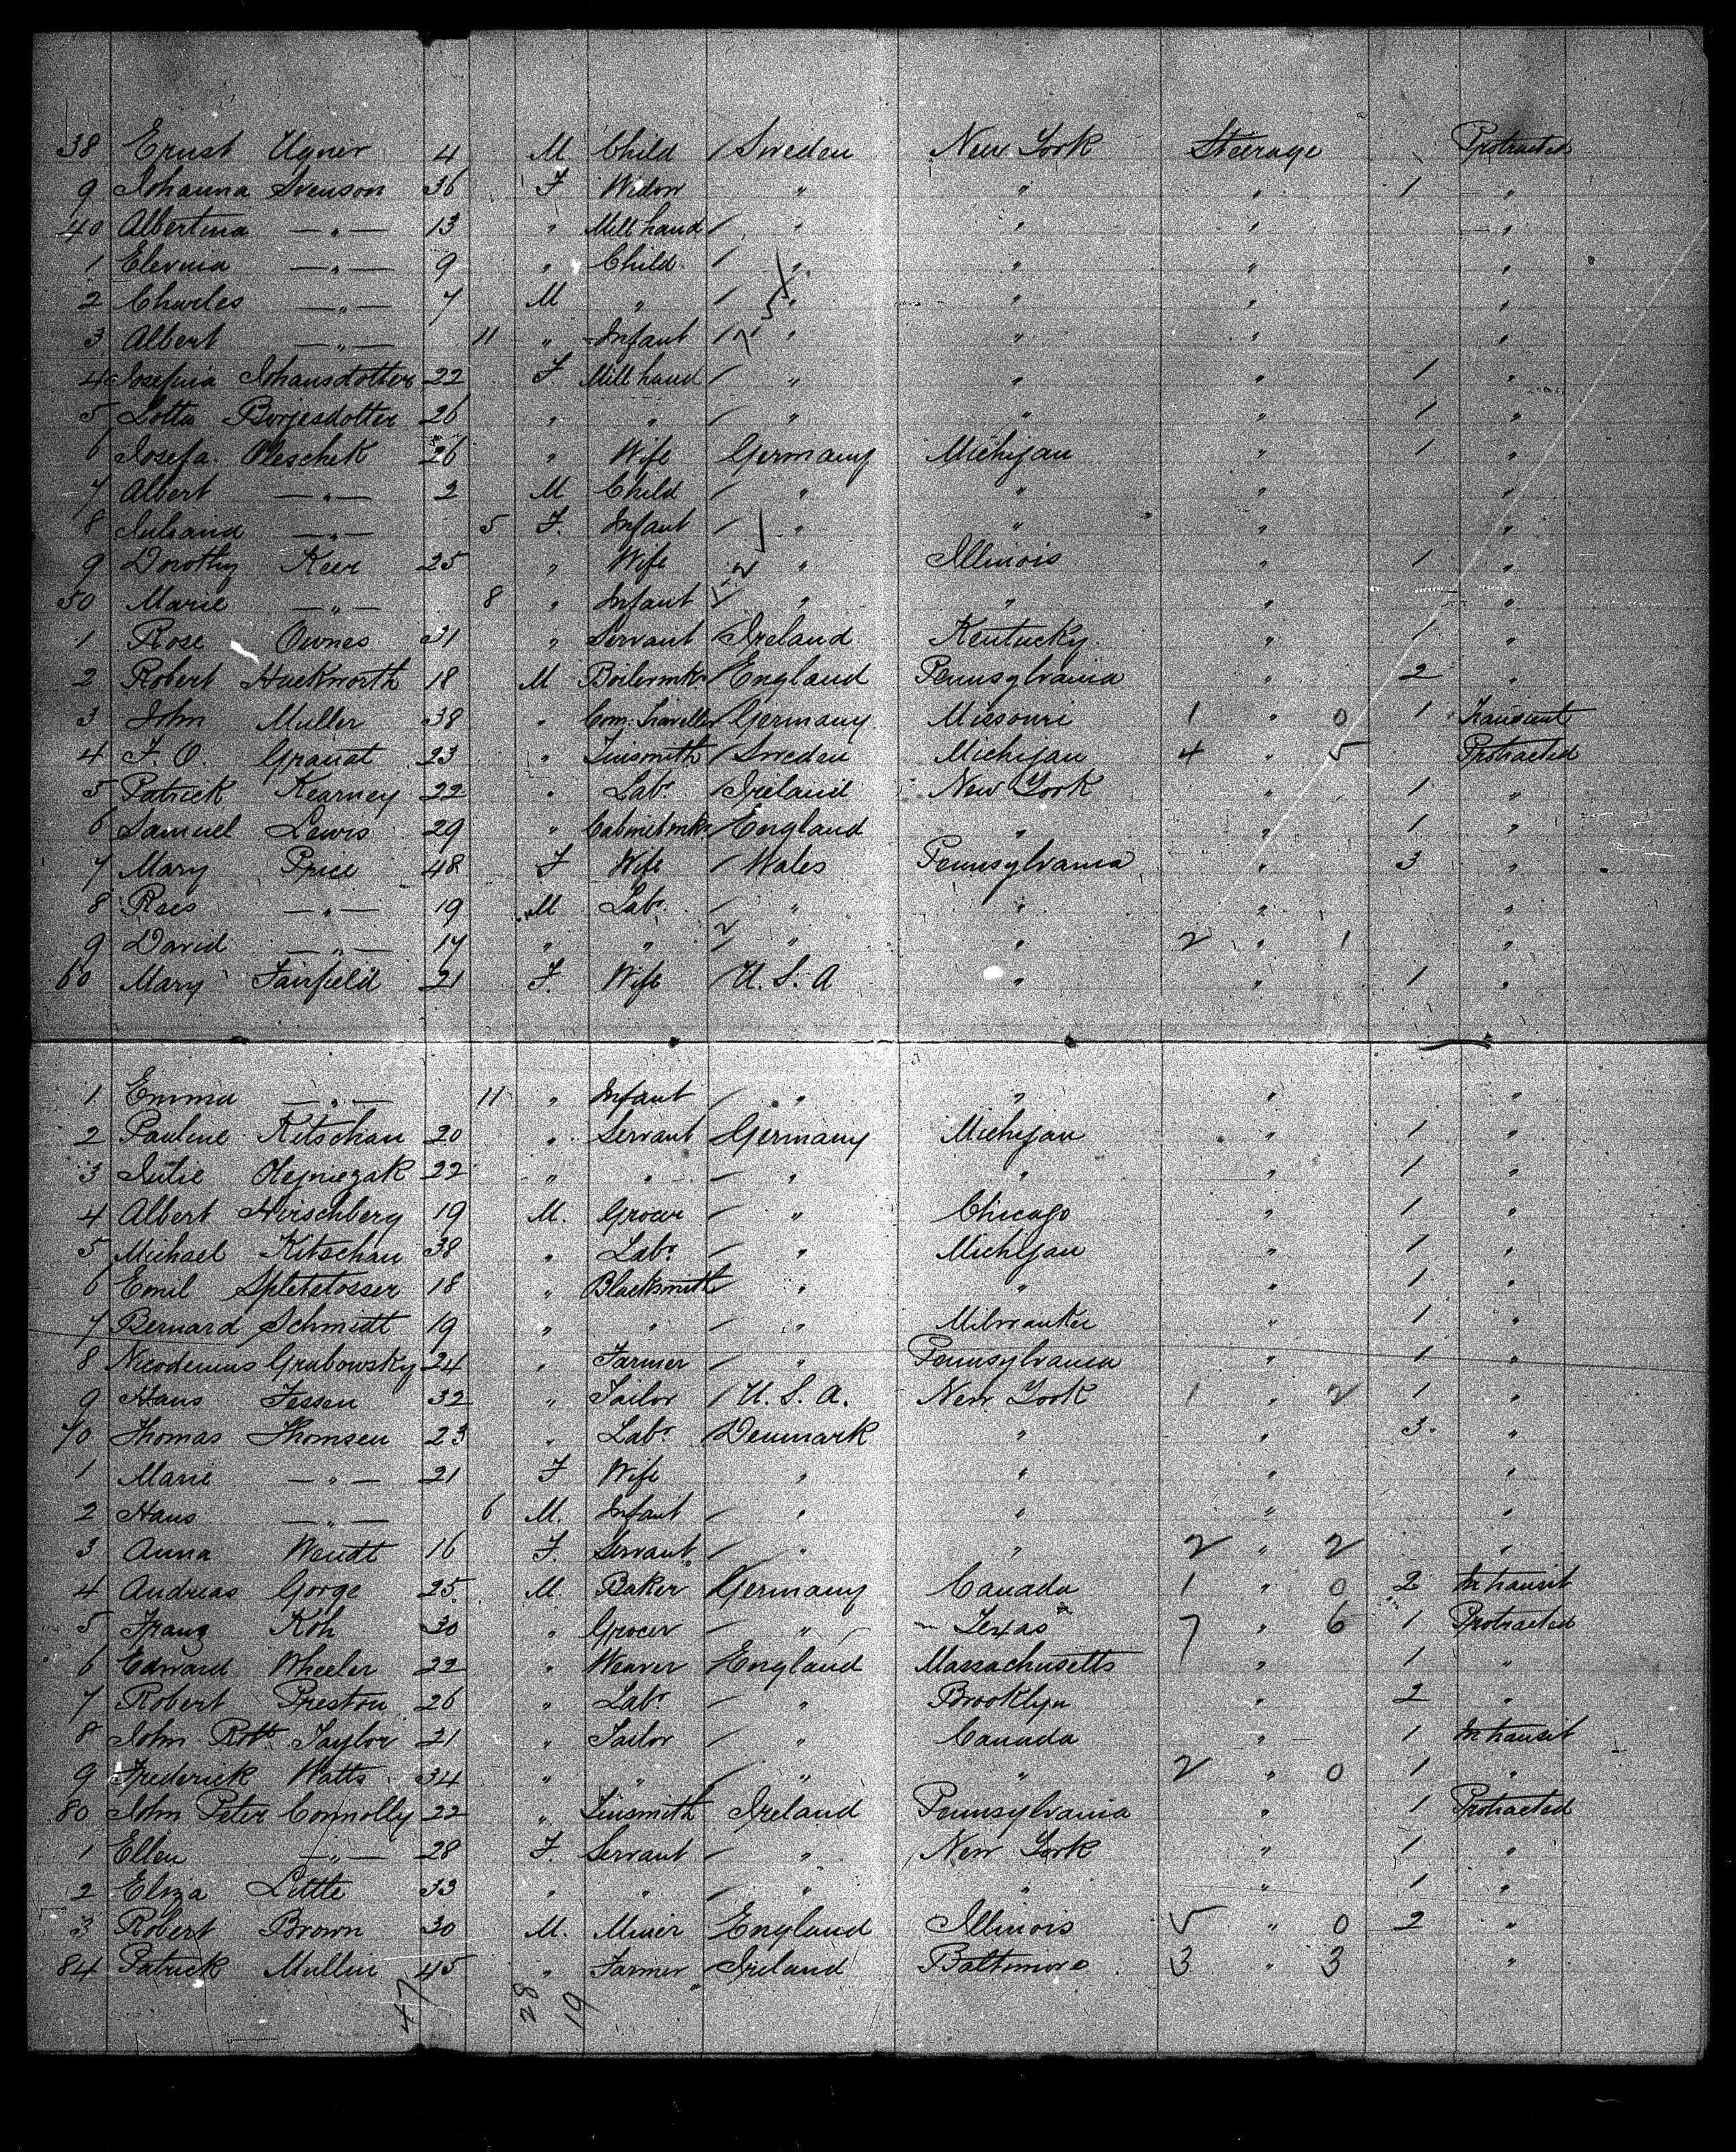 38 Ernst Ugner 4 M Child / Sweden New York Steerage Protracted
9 Johanna Svenson 36 F Widow " " " 1 "
40 Albertina — " — 13 " Mill hand / " " " "
1 — " — 9 " Child / " " " "
2 Charles — " — 7 M " / " " " "
3 Albert — " — 11 " Infant / " " " "
4 Josefina Johansdotter 22 F. Mill hand / " " " 1 "
5 Lotta Borjesdotter 26 " " / " " " 1 "
6 Josefa Oleschek 26 " Wife Germany Michigan " 1 "
7 Albert — " — 2 M Child / " " " "
8 — " — 5 F. Infant / " " " "
9 Dorothy Keer 25 " Wife " Illinois " 1 "
50 Marie — " — 8 " Infant / " " " "
1 Rose Ownes 31 " Servant / Ireland Kentucky " 1 "
2 Robert Hackworth 18 M Boilermkr / England Pennsylvania " 2 "
3 John Muller 38 " Com. Traveller / Germany Missouri 1 " 0 1 Transient
4 F. O. Granat 23 " Tinsmith / Sweden Michigan 4 " 5 Protracted
5 Patrick Kearney 22 " Labr / Ireland New York " 1 "
6 Samuel Lewis 29 " Cabinetmkr / England " " 1 "
7 Mary Price 48 F Wife / Wales Pennsylvania " 3 "
8 Rees — " — 19 M Labr / " " " "
9 David — " — 17 " " 2 / " " 2 " 1 "
60 Mary Fairfield 21 F. Wife U. S. A " " 1 "
1 Emma — " — 11 " Infant / " " " "
2 Pauline Kitschan 20 " Servant Germany Michigan " 1 "
3 Julie 22 " " / " " " 1 "
4 Albert Hirschberg 19 M. Grocer / " Chicago " 1 "
5 Michael Kitschan 38 " Labr / " Michigan " 1 "
6 Emil Spletstosser 18 " Blacksmith " " " 1 "
7 Bernard Schmidt 19 " " / " Milwaukee " 1 "
8 Nicodemus Grabowsky 24 " Farmer / " Pennsylvania " 1 "
9 Hans Jessen 32 " Tailor / U. S. A. New York 1 " 2 1 "
70 Thomas Thomsen 23 " Labr / Denmark " " 3 "
1 Marie — " — 21 F Wife " " " "
2 Hans — " — 6 M. Infant / " " " "
3 Anna Wendt 16 F. Servant / " " 2 " 2 "
4 Andreas Gorge 25 M. Baker Germany Canada 1 " 0 2 In transit
5 Franz Koh 30 " Grocer / " Texas 7 " 6 1 Protracted
6 Edward Wheeler 22 " Weaver England Massachusetts " 1 "
7 Robert Preston 26 " Labr / " Brooklyn " 2 "
8 John Robt Taylor 21 " Tailor / " Canada " 1 In transit
9 Frederick Watts 34 " " / " " 2 " 0 1 "
80 John Peter Connolly 22 " Tinsmith Ireland Pennsylvania " 1 Protracted
1 Ellen — " — 28 F. Servant / " New York " 1 "
2 Eliza Little 33 " " / " " " 1 "
3 Robert Brown 30 M. Miner England Illinois 5 " 0 2 "
84 Patrick Mullin 45 " Farmer Ireland Baltimore 3 " 3 "
47 28 19